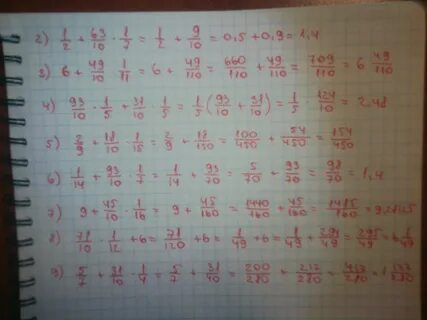 2) 1/2 + 63/10 · 1/7 = 1/2 + 9/10 = 0,5 + 0,9 = 1,4
3) 6 + 49/10 · 1/11 = 6 + 49/110 = 660/110 + 49/110 = 709/110 = 6 49/110
4) 93/10 · 1/5 + 31/10 · 1/5 = 1/5 (93/10 + 31/10) = 1/5 · 124/10 = 2.48
5) 2/9 + 18/10 · 1/15 = 2/9 + 18/150 = 100/450 + 54/450 = 154/450
6) 1/14 + 93/10 · 1/7 = 1/14 + 93/70 = 5/70 + 93/70 = 98/70 = 1,4
7) 9 + 45/10 · 1/16 = 9 + 45/160 = 1440/160 + 45/160 = 1485/160 = 9,28125
8) 71/10 · 1/12 + 6 = 71/120 + 6 = 1/49 + 6 = 1/49 + 294/49 = 295/49 = 6 1/49
9) 5/7 + 31/10 · 1/4 = 5/7 + 31/40 = 200/280 + 217/280 = 417/280 = 1 137/280